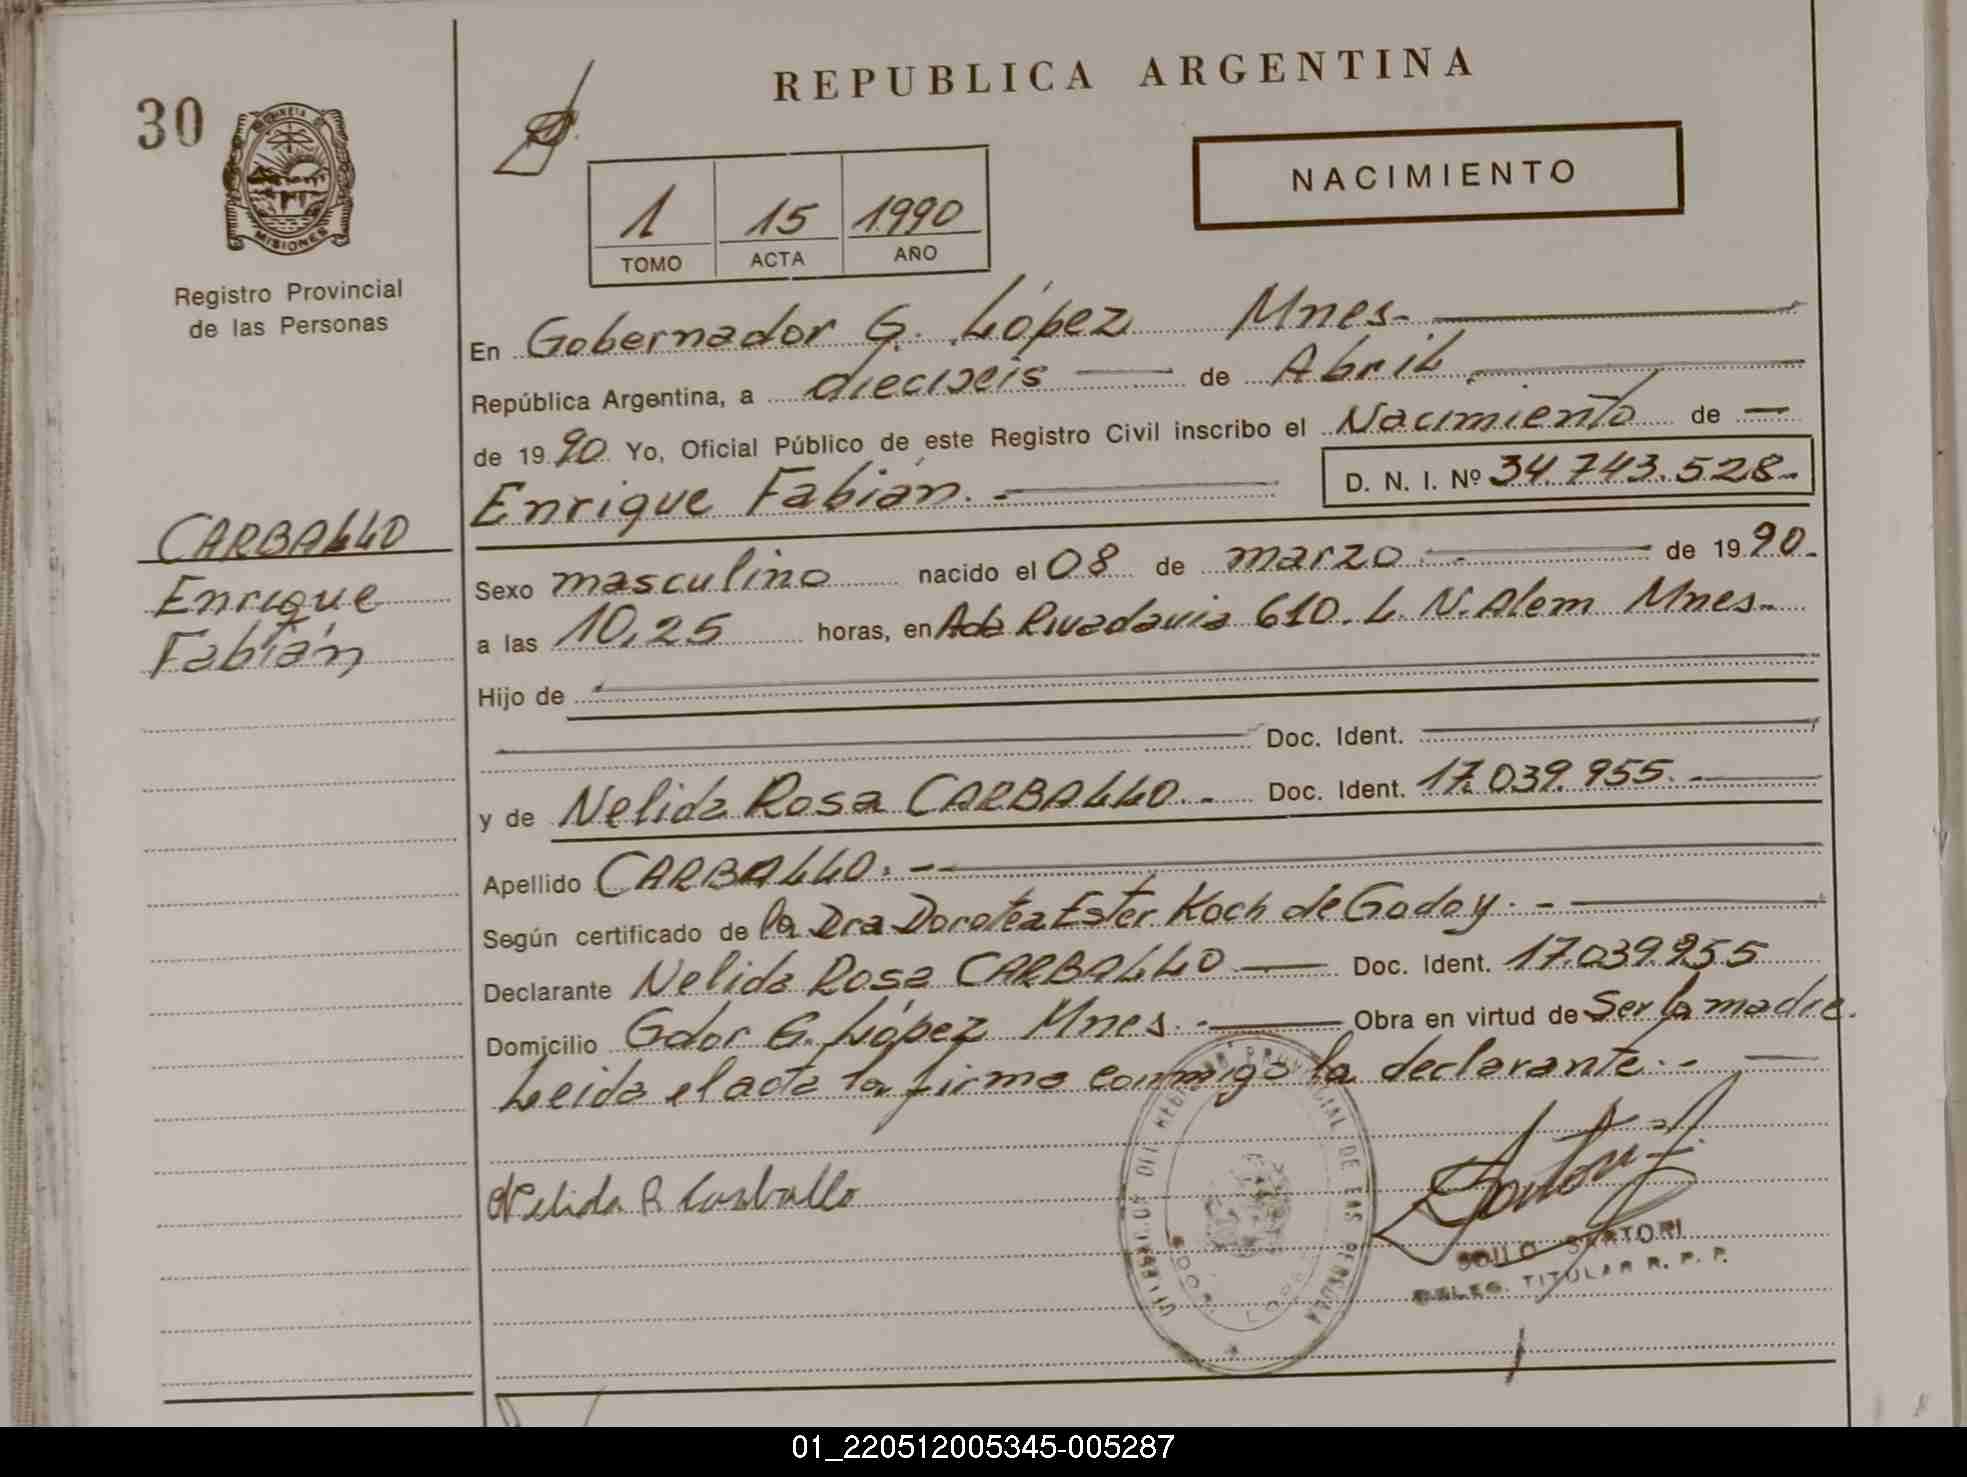 REPUBLICA ARGENTINA
30
NACIMIENTO
MISIONES
1 15 1990
TOMO ACTA AÑO
Registro Provincial
de las Personas
En Gobernador G. López Mnes-
República Argentina, a dieciseis de Abril
de 1990 Yo, Oficial Público de este Registro Civil inscribo el Nacimiento de
Enrique Fabián. D. N. I. Nº 34.743.528-
CARBALLO
Enrique
Fabián
Sexo masculino nacido el 08 de marzo de 1990.
a las 10,25 horas, en Ada Rivadavia 610. L. N. Alem Mnes-
Hijo de
Doc. Ident.
y de Nelida Rosa CARBALLO.- Doc. Ident. 17.039.955.-
Apellido CARBALLO.-
Según certificado de la Dra Dorotea Ester Koch de Godoy.-
Declarante Nelida Rosa CARBALLO Doc. Ident. 17.039955
Domicilio Gdor G. López Mnes.- Obra en virtud de Ser la madre.
Leida el acta la firma conmigo la declarante.-
Nelida R Carballo
SARTORI
DELEG. TITULAR R. P. P.
01_220512005345-005287